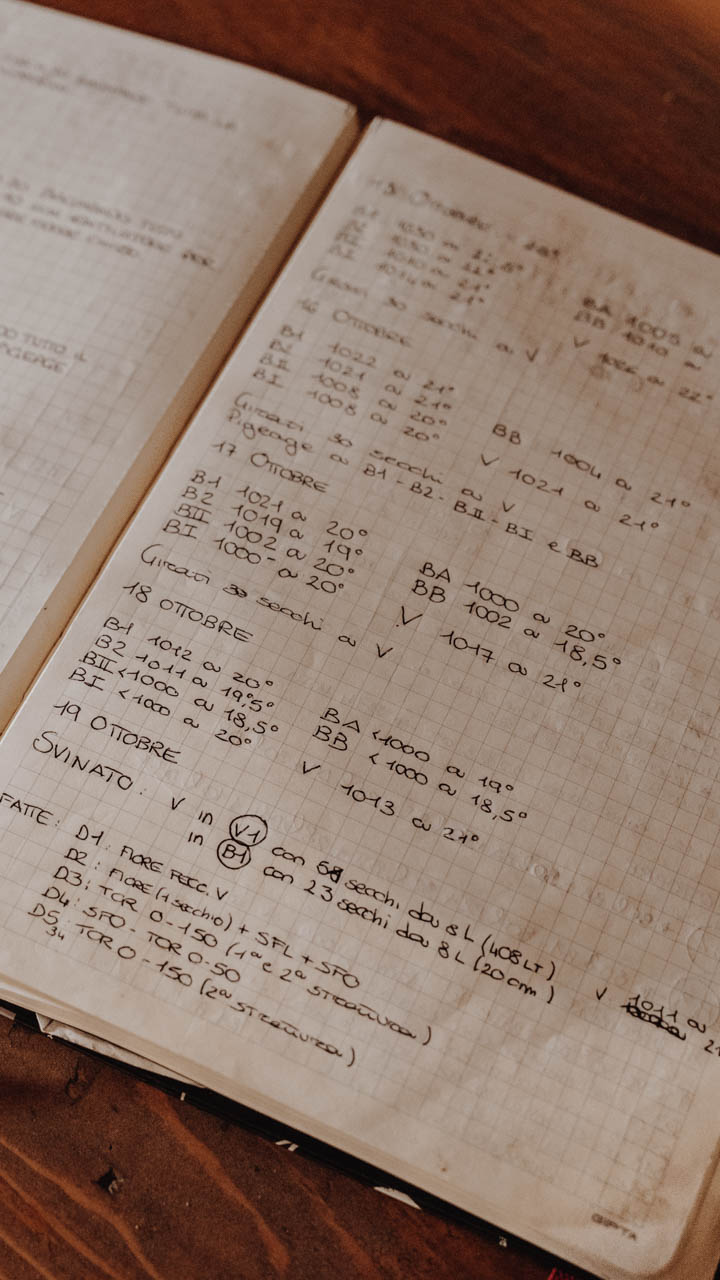 DO TUTTO IL
PIGEAGE
15 OTTOBRE
B1 1030 a
B2 1030 a 22°
BII 1010 a 21°
BI 1014 a 21°
BA 1005 a
BB 1010 a
V 22°
Girati 30 secchi a V
16 OTTOBRE
B1 1022 a 21°
B2 1021 a 21°
BII 1008 a 20°
BI 1008 a 20°
BB 1004 a 21°
V 1021 a 21°
Girati 30 secchi a V
Pigeage a B1 - B2 - BII - BI e BB
17 OTTOBRE
B1 1021 a 20°
B2 1019 a 19°
BII 1002 a 20°
BI 1000- a 20°
BA 1000 a 20°
BB 1002 a 18,5°
V 1017 a 21°
Girati 30 secchi a V
18 OTTOBRE
B1 1012 a 20°
B2 1011 a 19,5°
BII <1000 a 18,5°
BI <1000 a 20°
BA <1000 a 19°
BB <1000 a 18,5°
V 1013 a 21°
19 OTTOBRE
V 1011 a 21
SVINATO: V in V1 con secchi da 8L (408 LT)
in B1 con 23 secchi da 8L (20 cm)
FATTE: D1: FIORE FECC. V
D2: FIORE (1 secchio) + SFL + SFO
D3: TOR 0-150 (1a e 2a STRETTURA)
D4: SFO - TOR 0-50
D5: TOR 0-150 (2a STRETTURA)
34
GIPTA